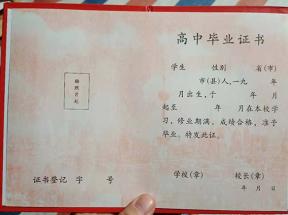 照片
骑缝
盖章
证书登记 字 号
高中毕业证书
学生 性别 省(市)
市(县)人,一九 年
月出生,于 年 月
起至 年 月在本校学
习,修业期满,成绩合格,准予
毕业。特发此证。
学校(章) 校长(章)
年 月 日